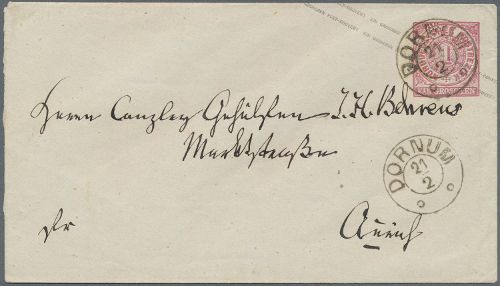 EIN GROSCHEN
DORNUM
21
2
Herrn Canzley Gehülfen J. H. Behrens
Marktstraße
DORNUM
21
2
Fr
Aurich